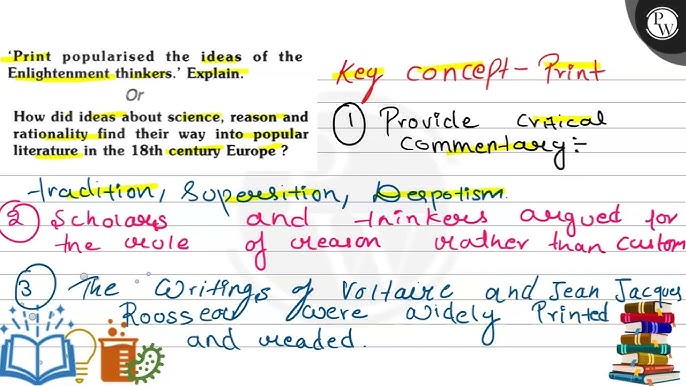 'Print popularised the ideas of the
Enlightenment thinkers.' Explain.
Or
How did ideas about science, reason and
rationality find their way into popular
literature in the 18th century Europe ?
Key concept - Print
① Provide critical
commentary :-
tradition, Supersition, Despotism.
② Scholars and thinkers argued for
the rule of reason rather than custom
③ The writings of Voltaire and Jean Jacques
Roosseau were widely Printed
and readed.